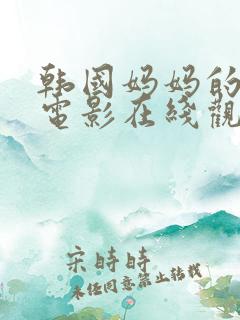 韩國妈妈的
電影在线觀
宋時時
未经同意禁止转载